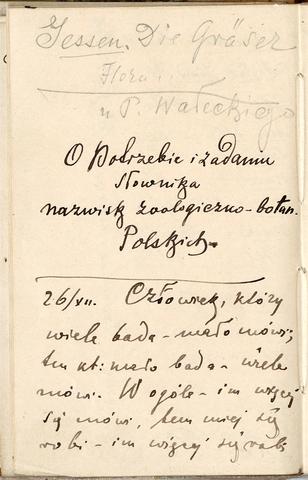 Jessen. Die Gräser
Flora
u P. Wałeckiego
O Potrzebie i zadaniu
słownika
nazwisk zoologiczno-botan.
Polskich.
26/XII. Człowiek, który
wiele bada - mało mówi;
ten kt: mało bada - wiele
mówi. W ogóle - im więcej
się mówi, tem mniej się
robi - im więcej się robi